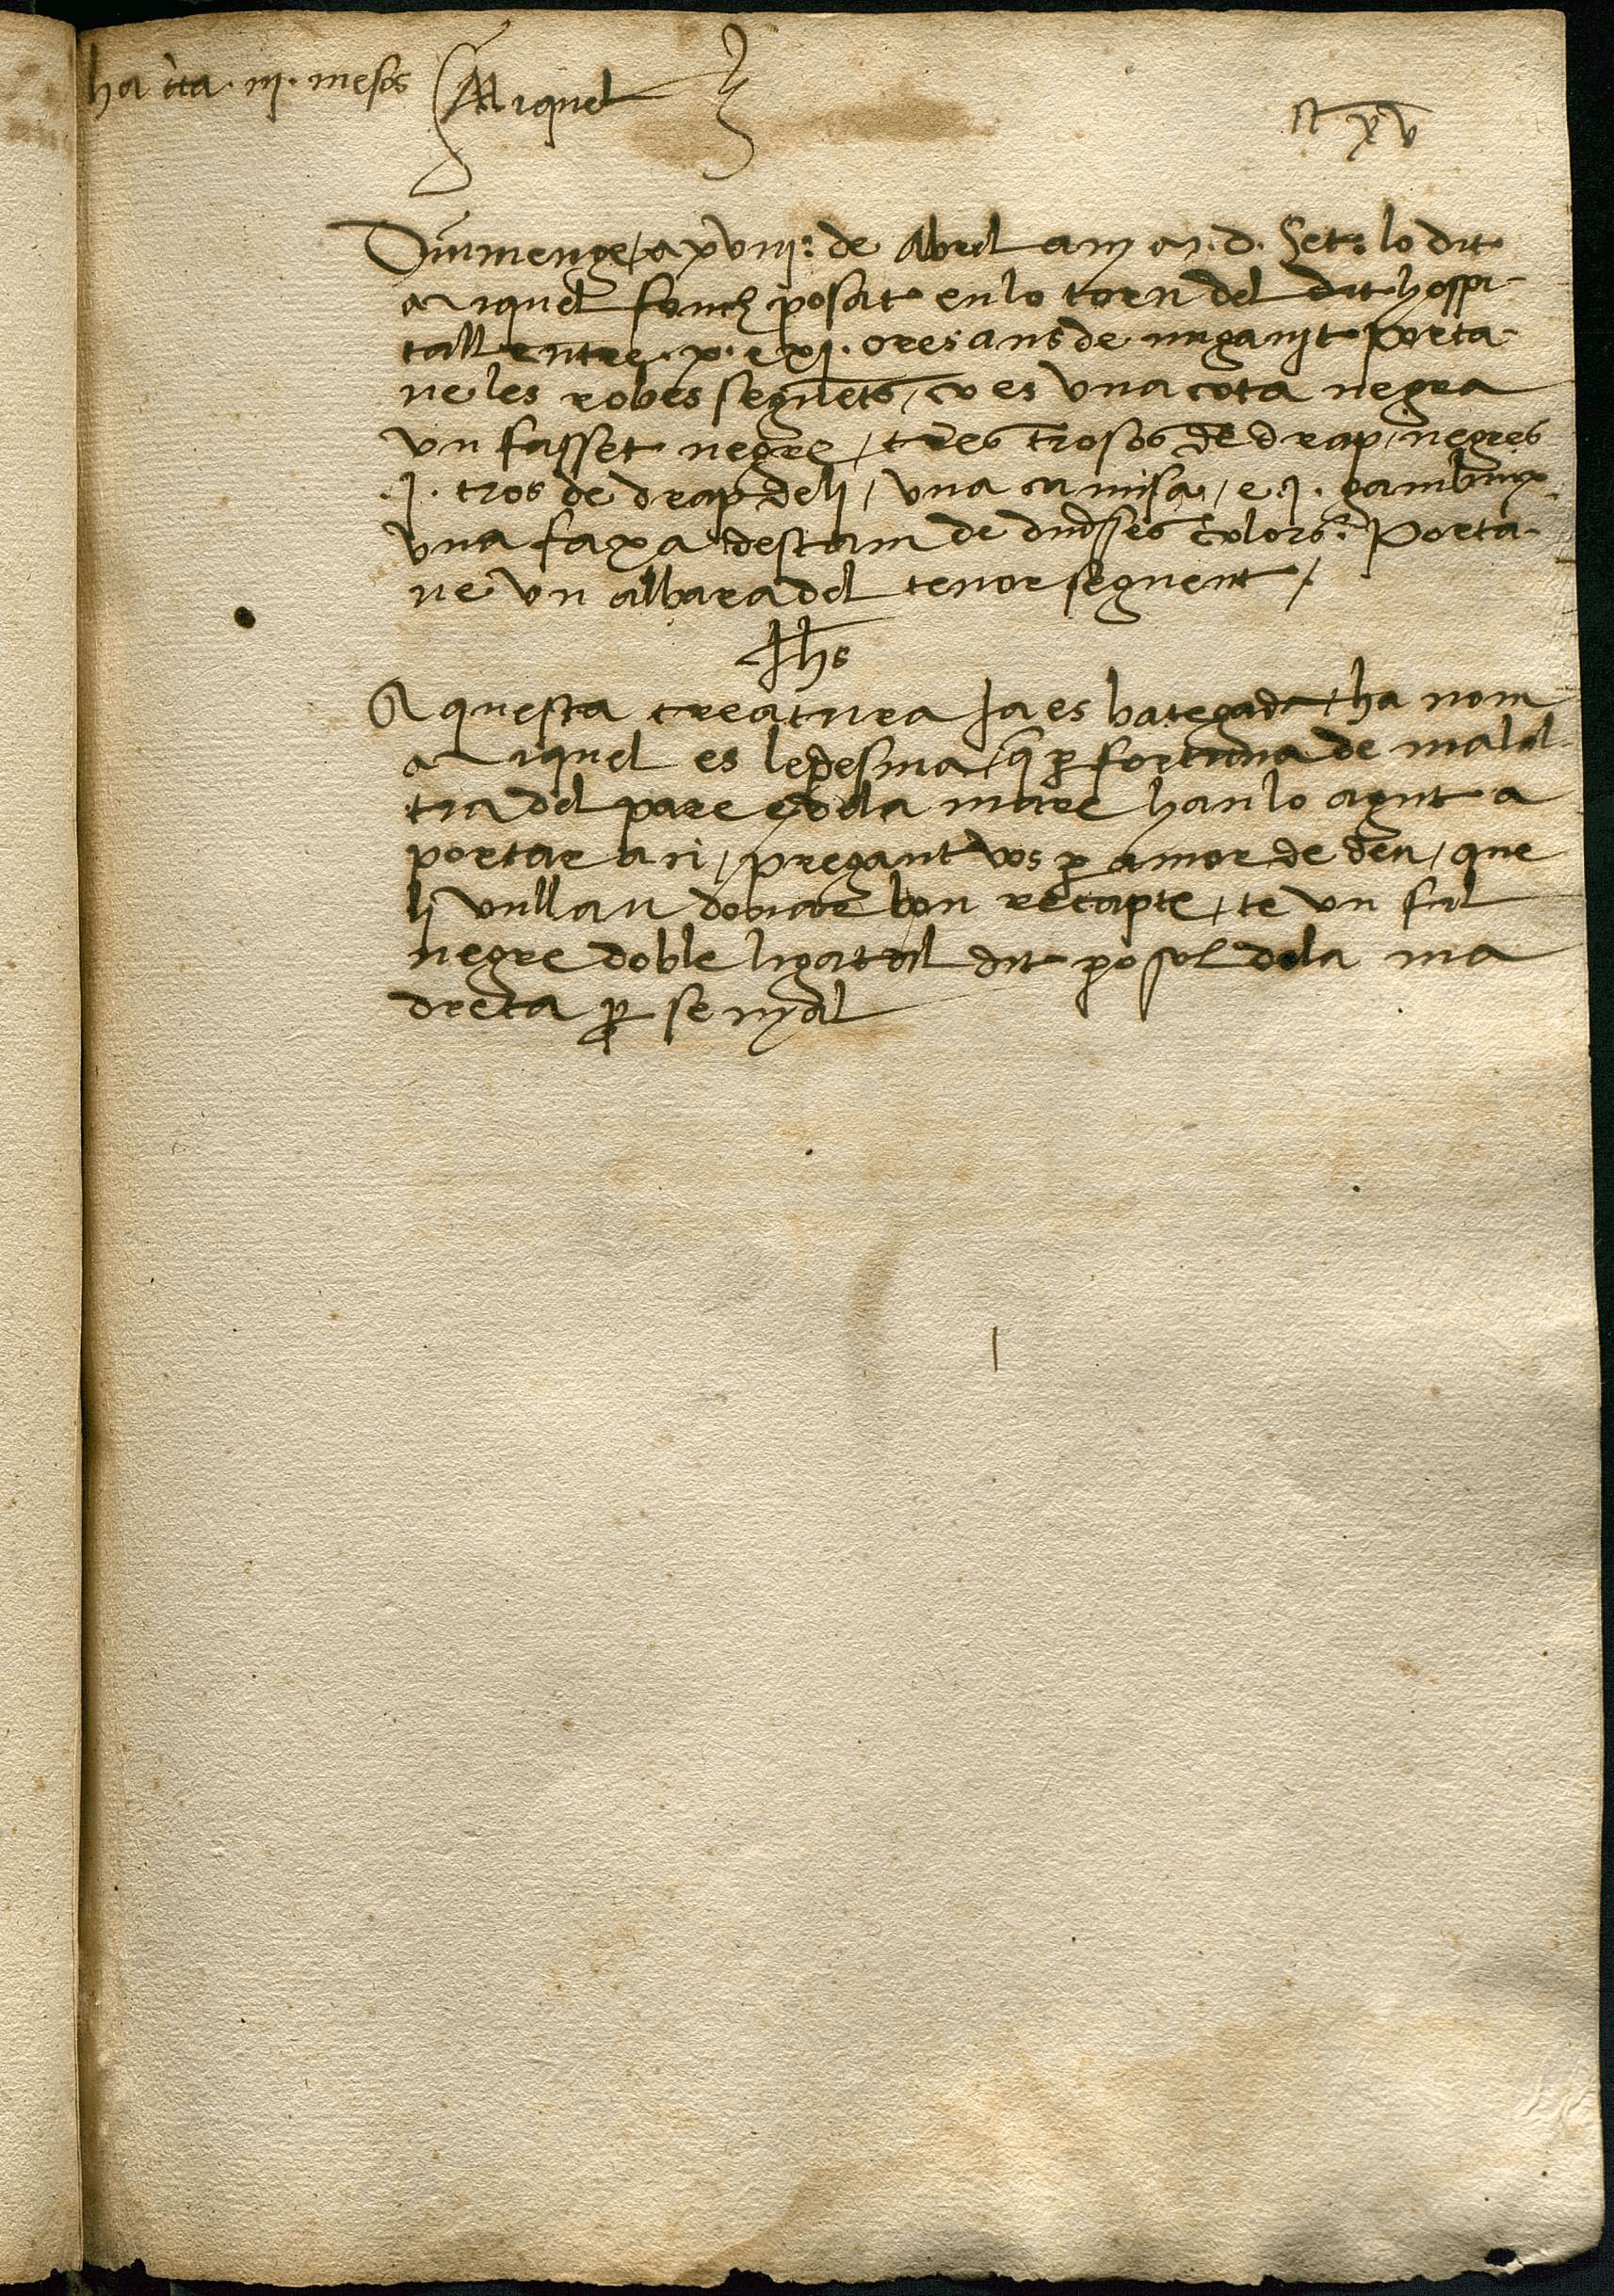 ha cca . iij . mesos Miquel
xv
Diumenge, a xviiij: de Abril any M.d. Set: lo dit
Miquel fonch posat en lo torn del dit hospi-
tall entre . x . e xj . ores ans de miganit porta-
ve les robes seguets, ço es una cota negra
un fasset negre, tres trosos de drap, negres
. j . tros de drap de li, una camisa, e . j . gambuix
una faxa destam de diversses colors: Porta-
ve un albara del tenor seguent,
Jhs
Aquesta creatura ja es bategada, ha nom
Miquel es ledesma, q p fortuna de malal-
tia del pare e de la mare han lo agut a
portar aci, pregant vos p amor de deu, que
li vullau donar bon recapte, te un fil
negre doble ligat al dit posol dela ma
dreta p senyal